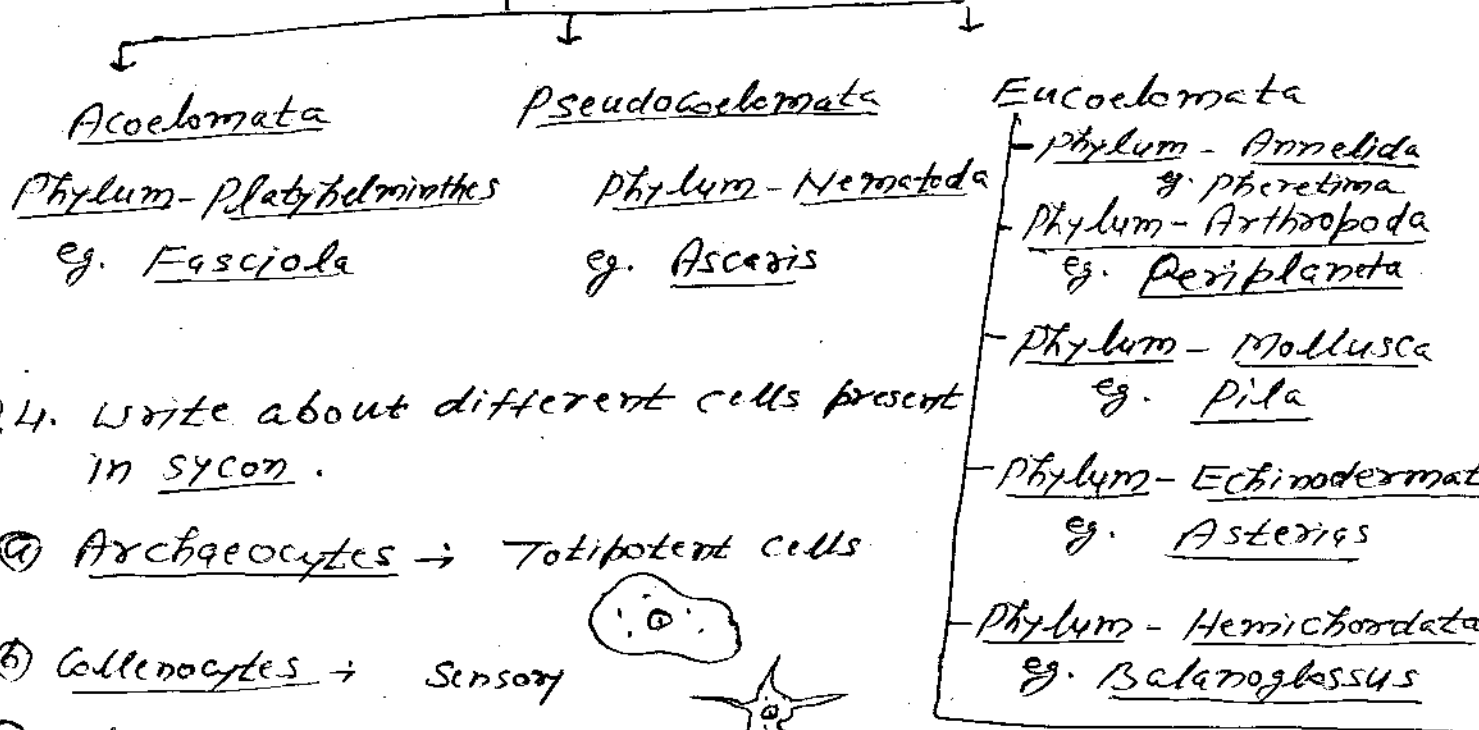 Acoelomata
Phylum - Platyhelminthes
eg. Fasciola
Pseudocoelomata
Phylum - Nematoda
eg. Ascaris
Eucoelomata
Phylum - Annelida
eg. Pheretima
Phylum - Arthropoda
eg. Periplaneta
Phylum - Mollusca
eg. Pila
Phylum - Echinodermat
eg. Asterias
Phylum - Hemichordata
eg. Balanoglossus
4. Write about different cells present
in sycon.
(a) Archaeocytes → Totipotent cells
(b) Collenocytes → Sensory